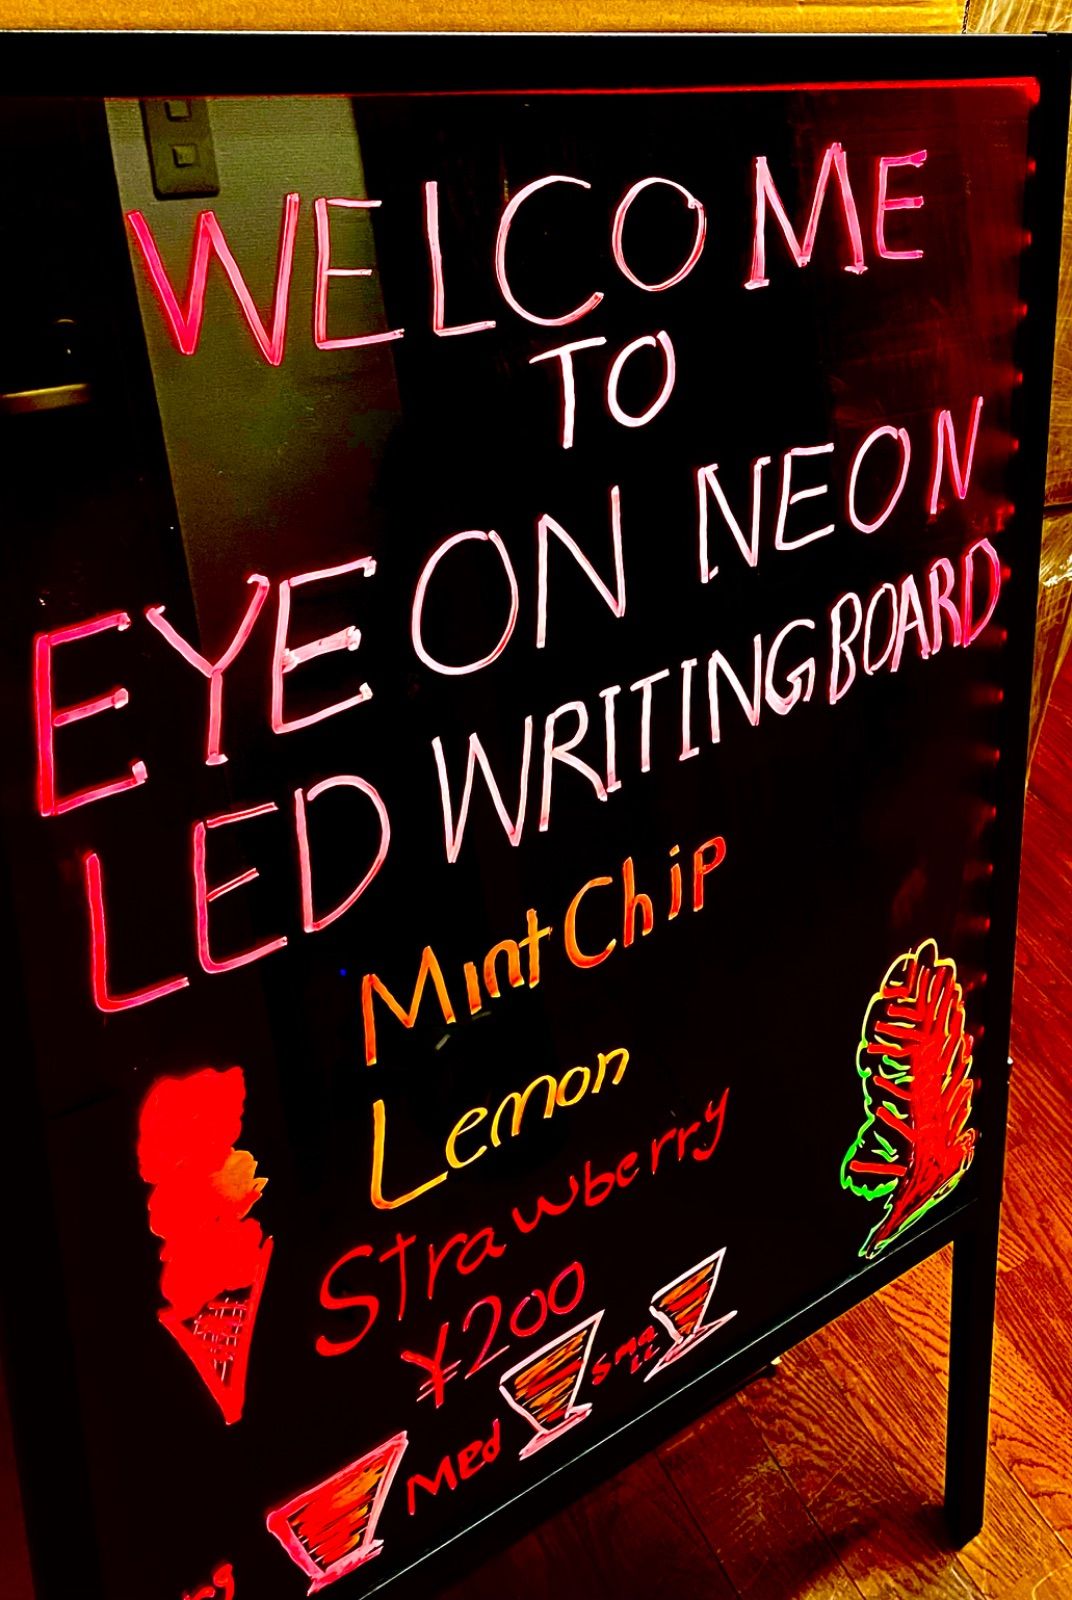 WELCOME
TO
EYE ON NEON
LED WRITING BOARD
Mint Chip
Lemon
Strawberry
¥200
Small
Med